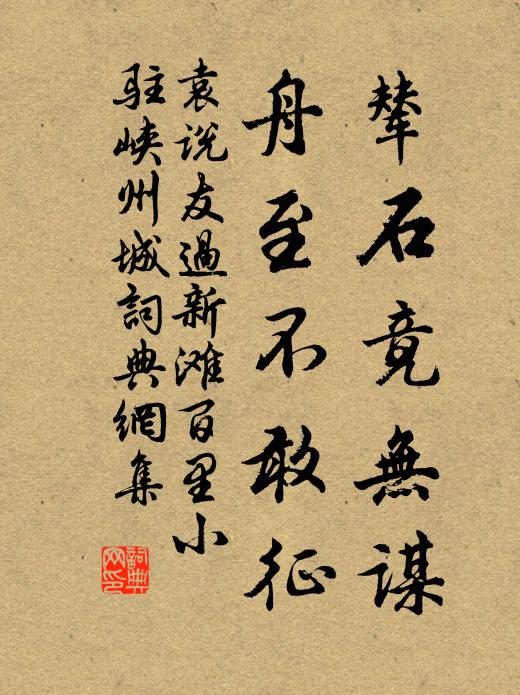 輦石竟無謀
舟至不敢征
袁说友過新滩百里小
駐峡州城詞典網集
詞典
网印